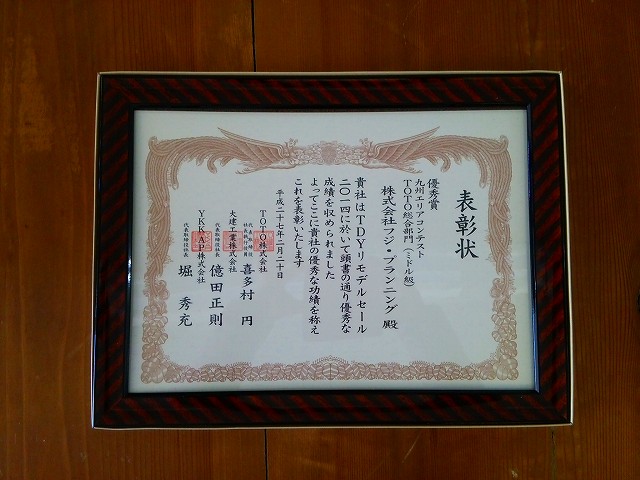 表彰状
優秀賞
九州エリアコンテスト
TOTO総合部門(ミドル級)
株式会社フジ・プランニング 殿
貴社はTDYリモデルセール
二〇一四に於いて頭書の通り優秀な
成績を収められました
よってここに貴社の優秀な功績を称え
これを表彰いたします
平成二十七年二月二十日
TOTO株式会社
代表取締役
社長執行役員 喜多村 円
大建工業株式会社
代表取締役社長 億田正則
YKKAP株式会社
代表取締役社長 堀 秀充